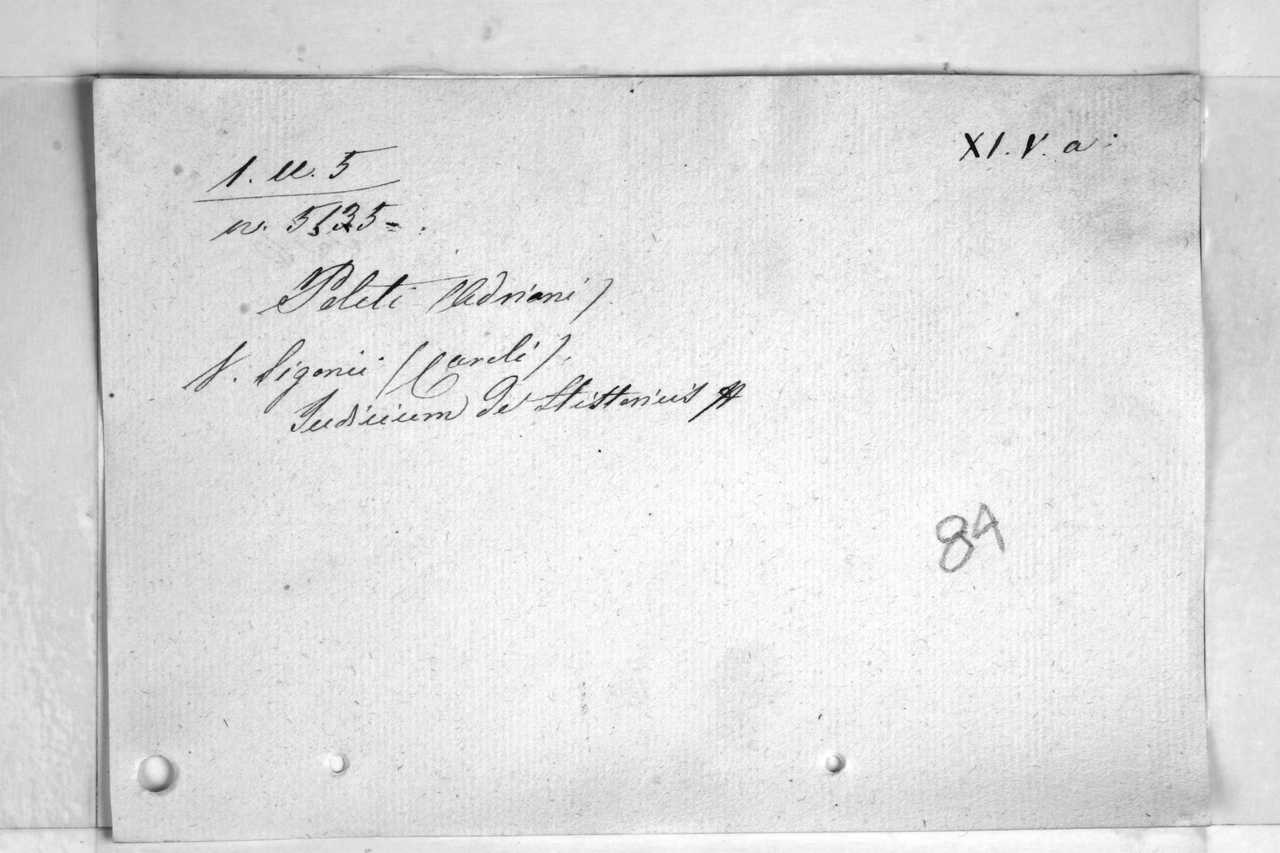 XI. V. a:
1. u. 5
n. 5135 =.
Politi (Adriani)
V. Sigonii (Caroli).
Judicium de Historicis
84